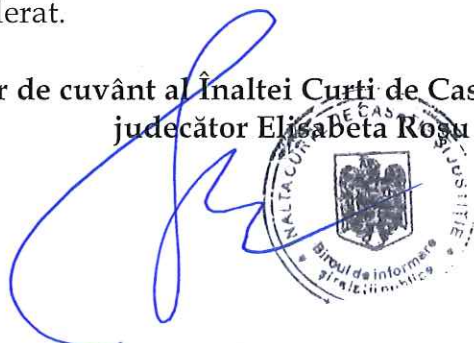 lerat.
r de cuvânt al Înaltei Curti de Cas
judecător Elisabeta Roșu
ÎNALTA CURTE DE CASAȚIE ȘI JUSTIȚIE
Biroul de informare
și relații publice